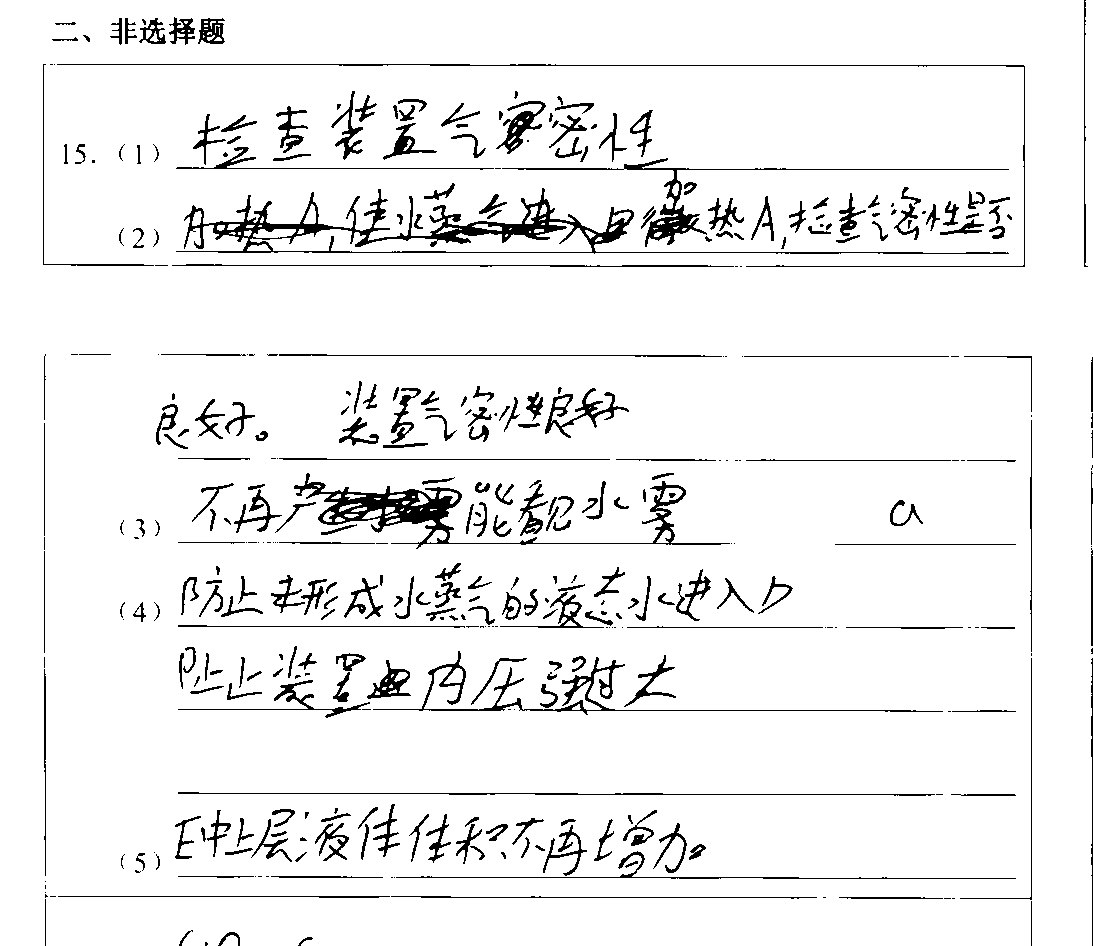 二、非选择题
15.（1）检查装置气密性
（2）加热A,检查气密性是否
良好。 装置气密性良好
（3）不再能看见水雾 a
（4）防止未形成水蒸气的液态水进入D
防止装置内压强过大
（5）E中上层液体体积不再增加。